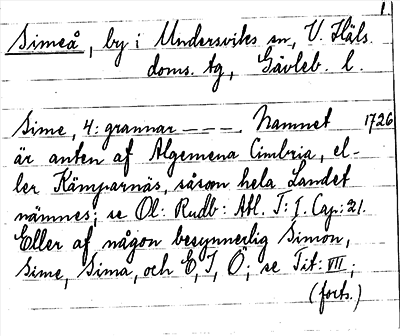 1.
Simeå, by i Undersviks sn, V. Häls.
doms. tg, Gävleb. l.
Sime, 4: grannar – – –. Namnet 1726
är anten af Algemena Cimbria, el-
ler Kämparnäs, såsom hela Landet
nämnes; se Ol: Rudb: Atl. T: I. Cap: 21.
Eller af någon besynnerlig Simon,
Sime, Sima, och E, I, Ö; se Tit: VII;
(forts.)